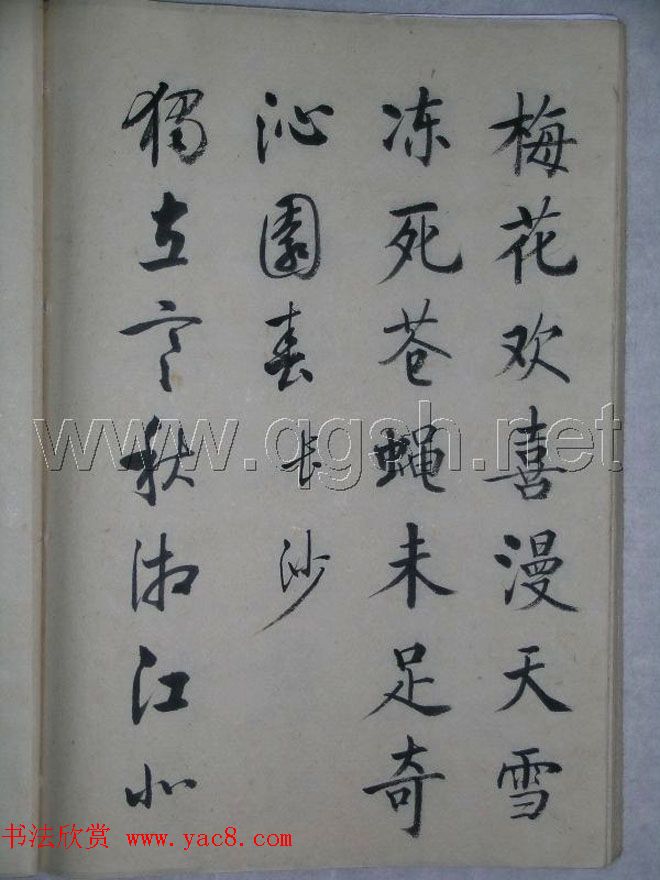 梅花欢喜漫天雪
冻死苍蝇未足奇
沁園春 长沙
獨立寒秋湘江北
www.qgsh.net
书法欣赏 www.yac8.com